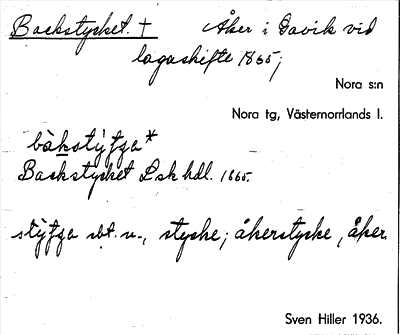 Backstycket. † Åker i Gavik vid
lagaskifte 1865;
Nora s:n
Nora tg, Västernorrlands l.
bàkstýtga*
Backstycket Lsk hdl. 1865.
stýtga sbt. n., stycke; åkerstycke, åker.
Sven Hiller 1936.